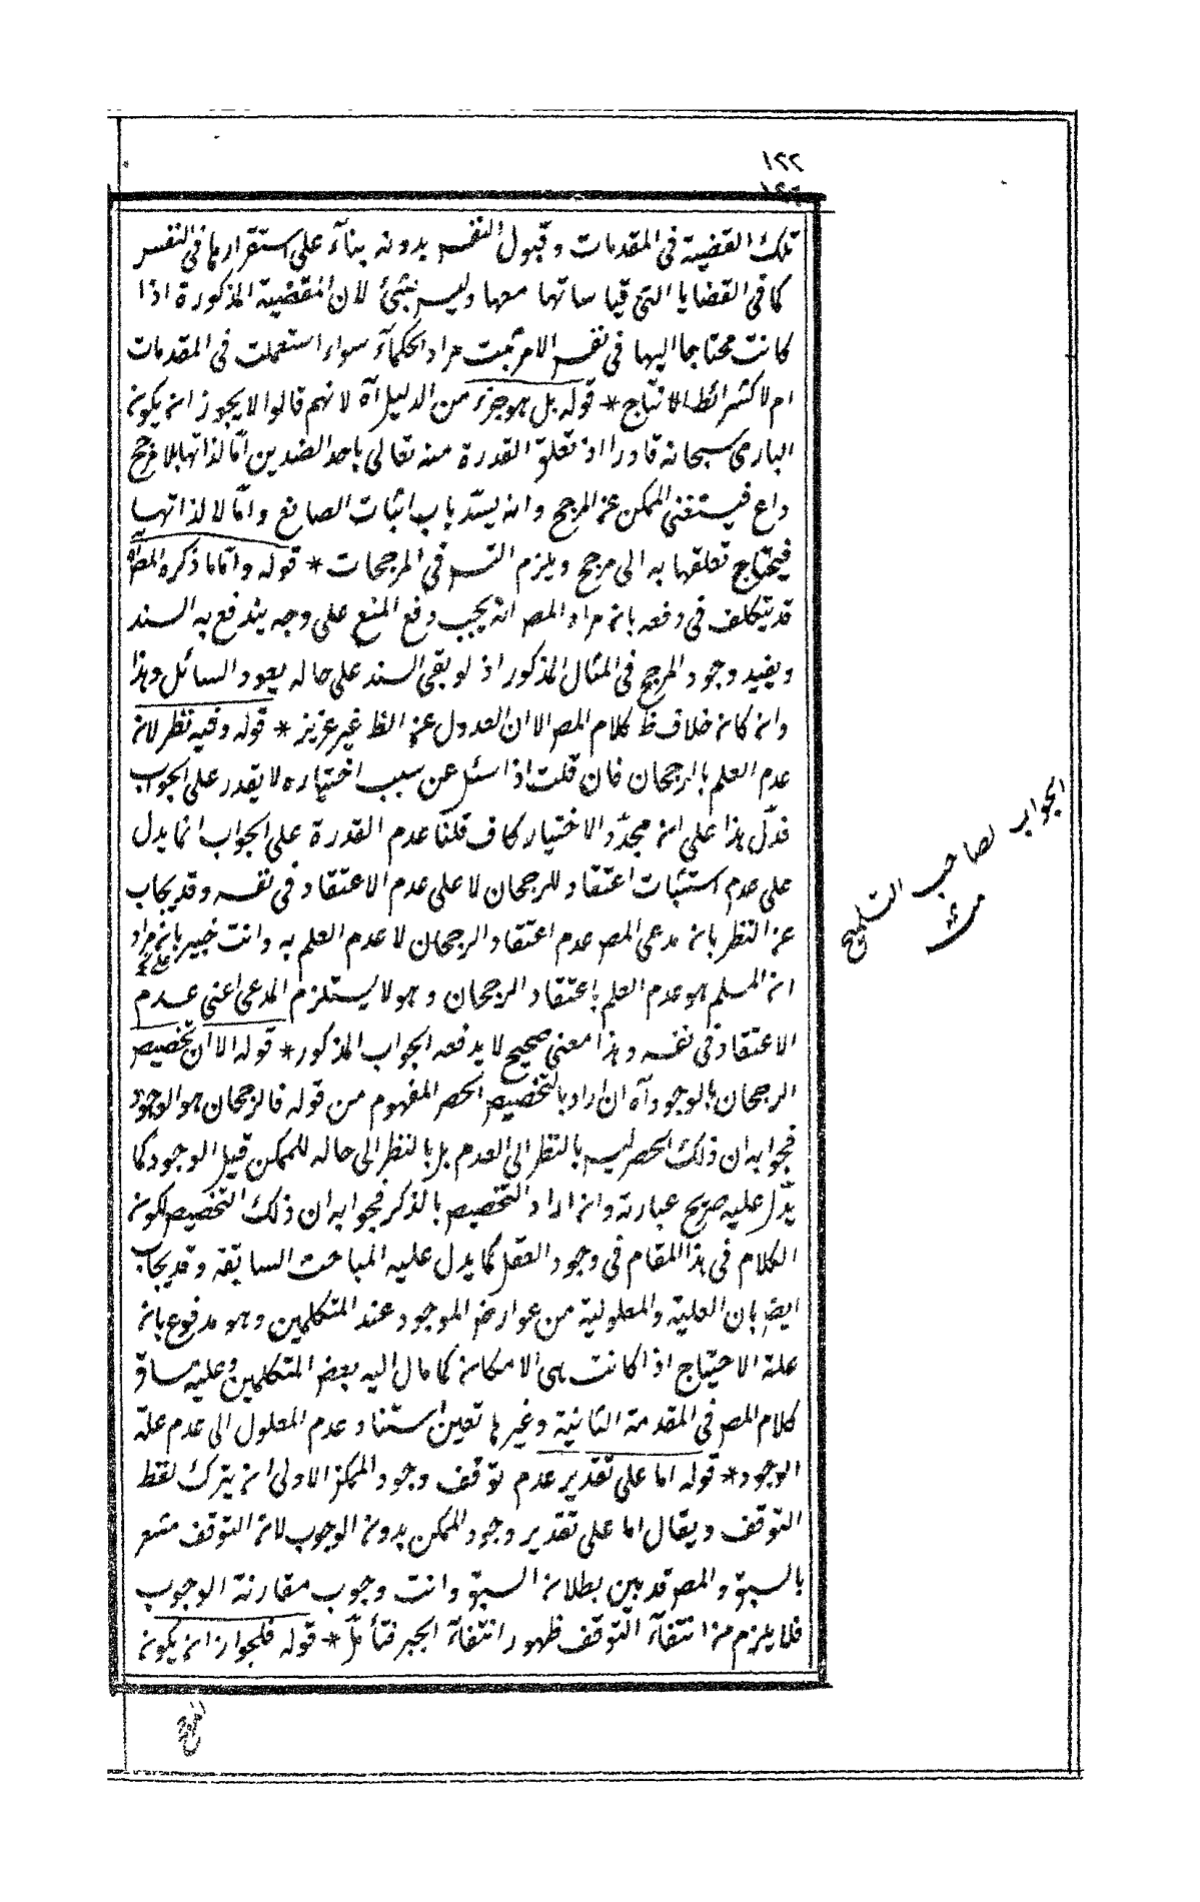 ١٢٢
تلك القضية فى المقدمات وقبول النفس بدونه بناء على استقرارها فى النفس
كما فى القضايا التى قياساتها معها وليس بشئ لان المقضية المذكورة اذا
كانت محتاجا اليها فى نفس الامر ثبت مراد الحكمآء سواء استعملت فى المقدمات
ام لا كشرائط الانتاج * قوله بل هو جزء من الدليل آه لانهم قالوا لا يجوز ان يكون
البارى سبحانه قادرا اذ تعلق القدرة منه تعالى باحد الضدين امّا لذاتها بلا مرجح
داع فيستغنى الممكن عن المرجح وانه يسدّ باب اثبات الصانع وامّا لا لذاتها
فيحتاج تعلقها به الى مرجح ويلزم التس فى المرجحات * قوله وامّا ما ذكره المص آه
قد يتكلف فى دفعه بان مراد المص انه يجب دفع المنع على وجه يندفع به السند
ويفيد وجود المرجح فى المثال المذكور اذ لو بقى السند على حاله يعود السائل وهذا
وان كان خلاف ظ كلام المص الا ان العدول عن الظ غير عزيز * قوله وفيه نظر لان
عدم العلم بالرجحان فان قلت اذا سئل عن سبب اختياره لا يقدر على الجواب
فدلّ هذا على ان مجرّد الاختيار كاف قلنا عدم القدرة على الجواب انما يدل
على عدم استثبات اعتقاد للرجحان لا على عدم الاعتقاد فى نفسه وقد يجاب
عن النظر بان مدعى المص عدم اعتقاد الرجحان لا عدم العلم به وانت خبير بان مراد
ان المسلم هو عدم العلم باعتقاد الرجحان وهو لا يستلزم المدعى اعنى عدم
الاعتقاد فى نفسه وهذا معنى صحيح لا يدفعه الجواب المذكور * قوله الا ان تخصيص
الرجحان بالوجود آه ان اراد بالتخصيص الحصر المفهوم من قوله فالرجحان هو الوجود
فجوابه ان ذلك الحصر ليس بالنظر الى العدم بل بالنظر الى حاله للممكن قبل الوجود كما
يدّل عليه صريح عبارته وان اراد التخصيص بالذكر فجوابه ان ذلك التخصيص لكون
الكلام فى هذا المقام فى وجود العقل كما يدل عليه المباحث السابقة وقد يجاب
ايض بان العلية والمعلولية من عوارض الموجود عند المتكلمين وهو مدفوع بان
علة الاحتياج اذا كانت هى الامكان كما مال اليه بعض المتكلمين وعليه ساق
كلام المص فى المقدمة الثانية وغيرها تعين استناد عدم المعلول الى عدم علة
الوجود * قوله اما على تقدير عدم توقف وجود الممكن الاولى ان يترك لفظ
التوقف ويقال اما على تقدير وجود الممكن بدون الوجوب لان التوقف مشعر
بالسبق والمص قد بين بطلان السبق وانت وجوب مقارنة الوجوب
فلا يلزم من انتفآء التوقف ظهور انتفآء الجبر فتأمّل * قوله فلجواز ان يكون
الجواب لصاحب التلميح
منه